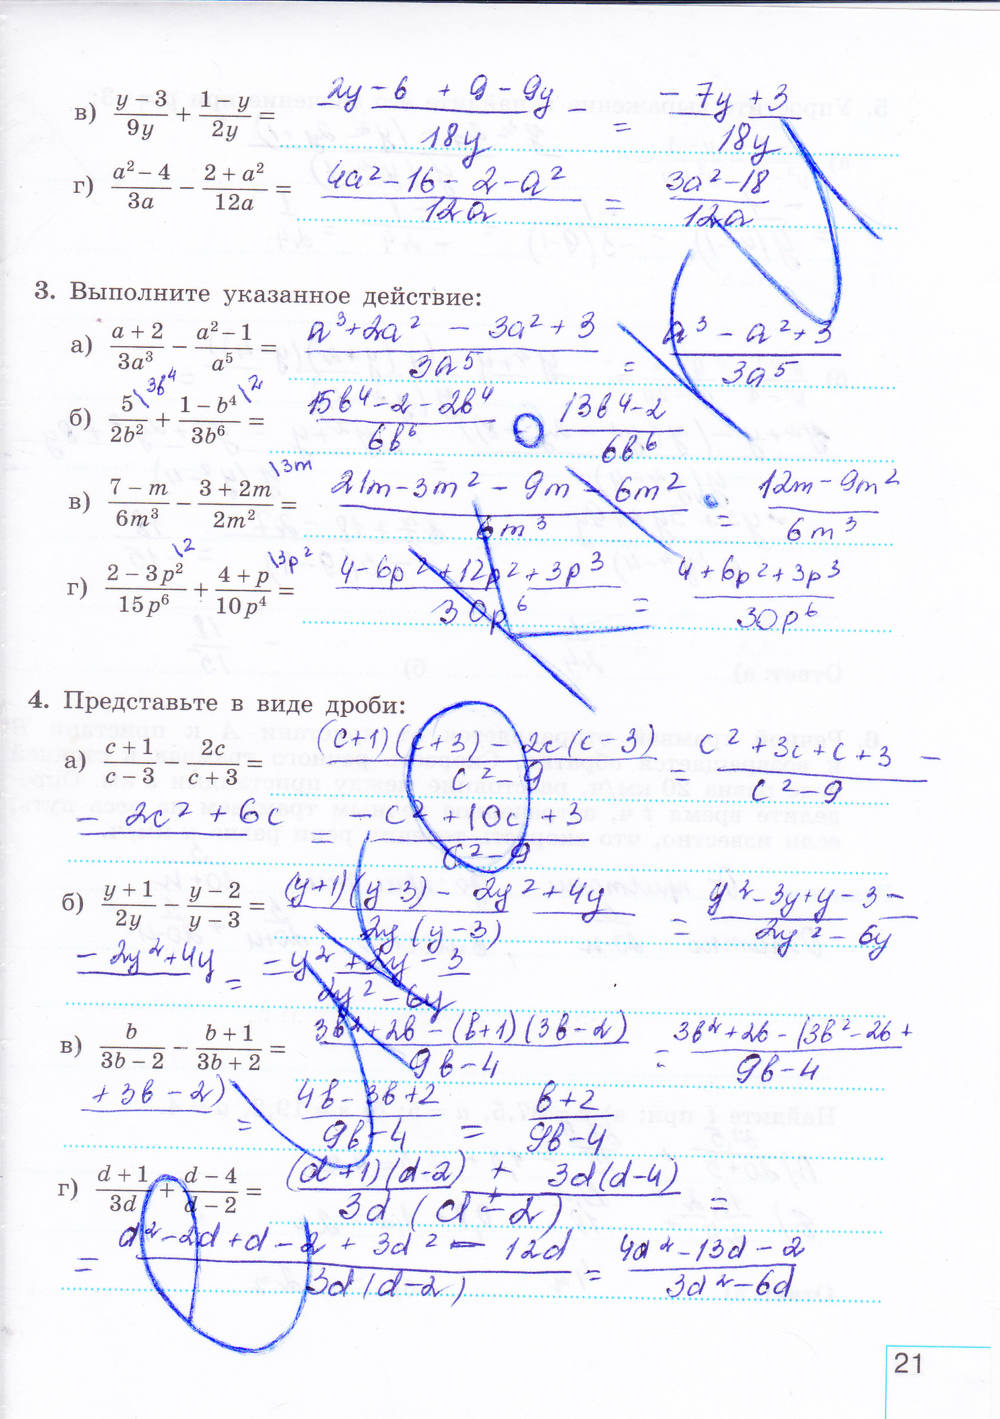 в) (y − 3)/(9y) + (1 − y)/(2y) = (2y − 6 + 9 − 9y)/(18y) = (−7y + 3)/(18y)
г) (a² − 4)/(3a) − (2 + a²)/(12a) = (4a² − 16 − 2 − a²)/(12a) = (3a² − 18)/(12a)
3. Выполните указанное действие:
а) (a + 2)/(3a³) − (a² − 1)/(a⁵) = (a³ + 2a² − 3a² + 3)/(3a⁵) = (a³ − a² + 3)/(3a⁵)
б) 5\3b⁴/(2b²) + (1 − b⁴)\2/(3b⁶) = (15b⁴ − 2 − 2b⁴)/(6b⁶) (13b⁴ − 2)/(6b⁶)
в) (7 − m)/(6m³) − (3 + 2m)\3m/(2m²) = (21m − 3m² − 9m − 6m²)/(6m³) = (12m − 9m²)/(6m³)
г) (2 − 3p²)\2/(15p⁶) + (4 + p)\3p²/(10p⁴) = (4 − 6p² + 12p² + 3p³)/(30p⁶) = (4 + 6p² + 3p³)/(30p⁶)
4. Представьте в виде дроби:
а) (c + 1)/(c − 3) − 2c/(c + 3) = ((c+1)(c+3) − 2c(c − 3))/(c² − 9) = (c² + 3c + c + 3 −
− 2c² + 6c)/(c² − 9) = (−c² + 10c + 3)/(c² − 9)
б) (y + 1)/(2y) − (y − 2)/(y − 3) = ((y+1)(y−3) − 2y² + 4y)/(2y(y−3)) = (y² − 3y + y − 3 −
− 2y² + 4y)/(2y² − 6y) = (−y² + 2y − 3)/(2y² − 6y)
в) b/(3b − 2) − (b + 1)/(3b + 2) = (3b² + 2b − (b+1)(3b−2))/(9b − 4) = (3b² + 2b − (3b² − 2b +
+ 3b − 2))/(9b − 4) = (4b − 3b + 2)/(9b − 4) = (b + 2)/(9b − 4)
г) (d + 1)/(3d) + (d − 4)/(d − 2) = ((d+1)(d−2) + 3d(d−4))/(3d(d − 2)) =
= (d² − 2d + d − 2 + 3d² − 12d)/(3d(d−2)) = (4d² − 13d − 2)/(3d² − 6d)
21